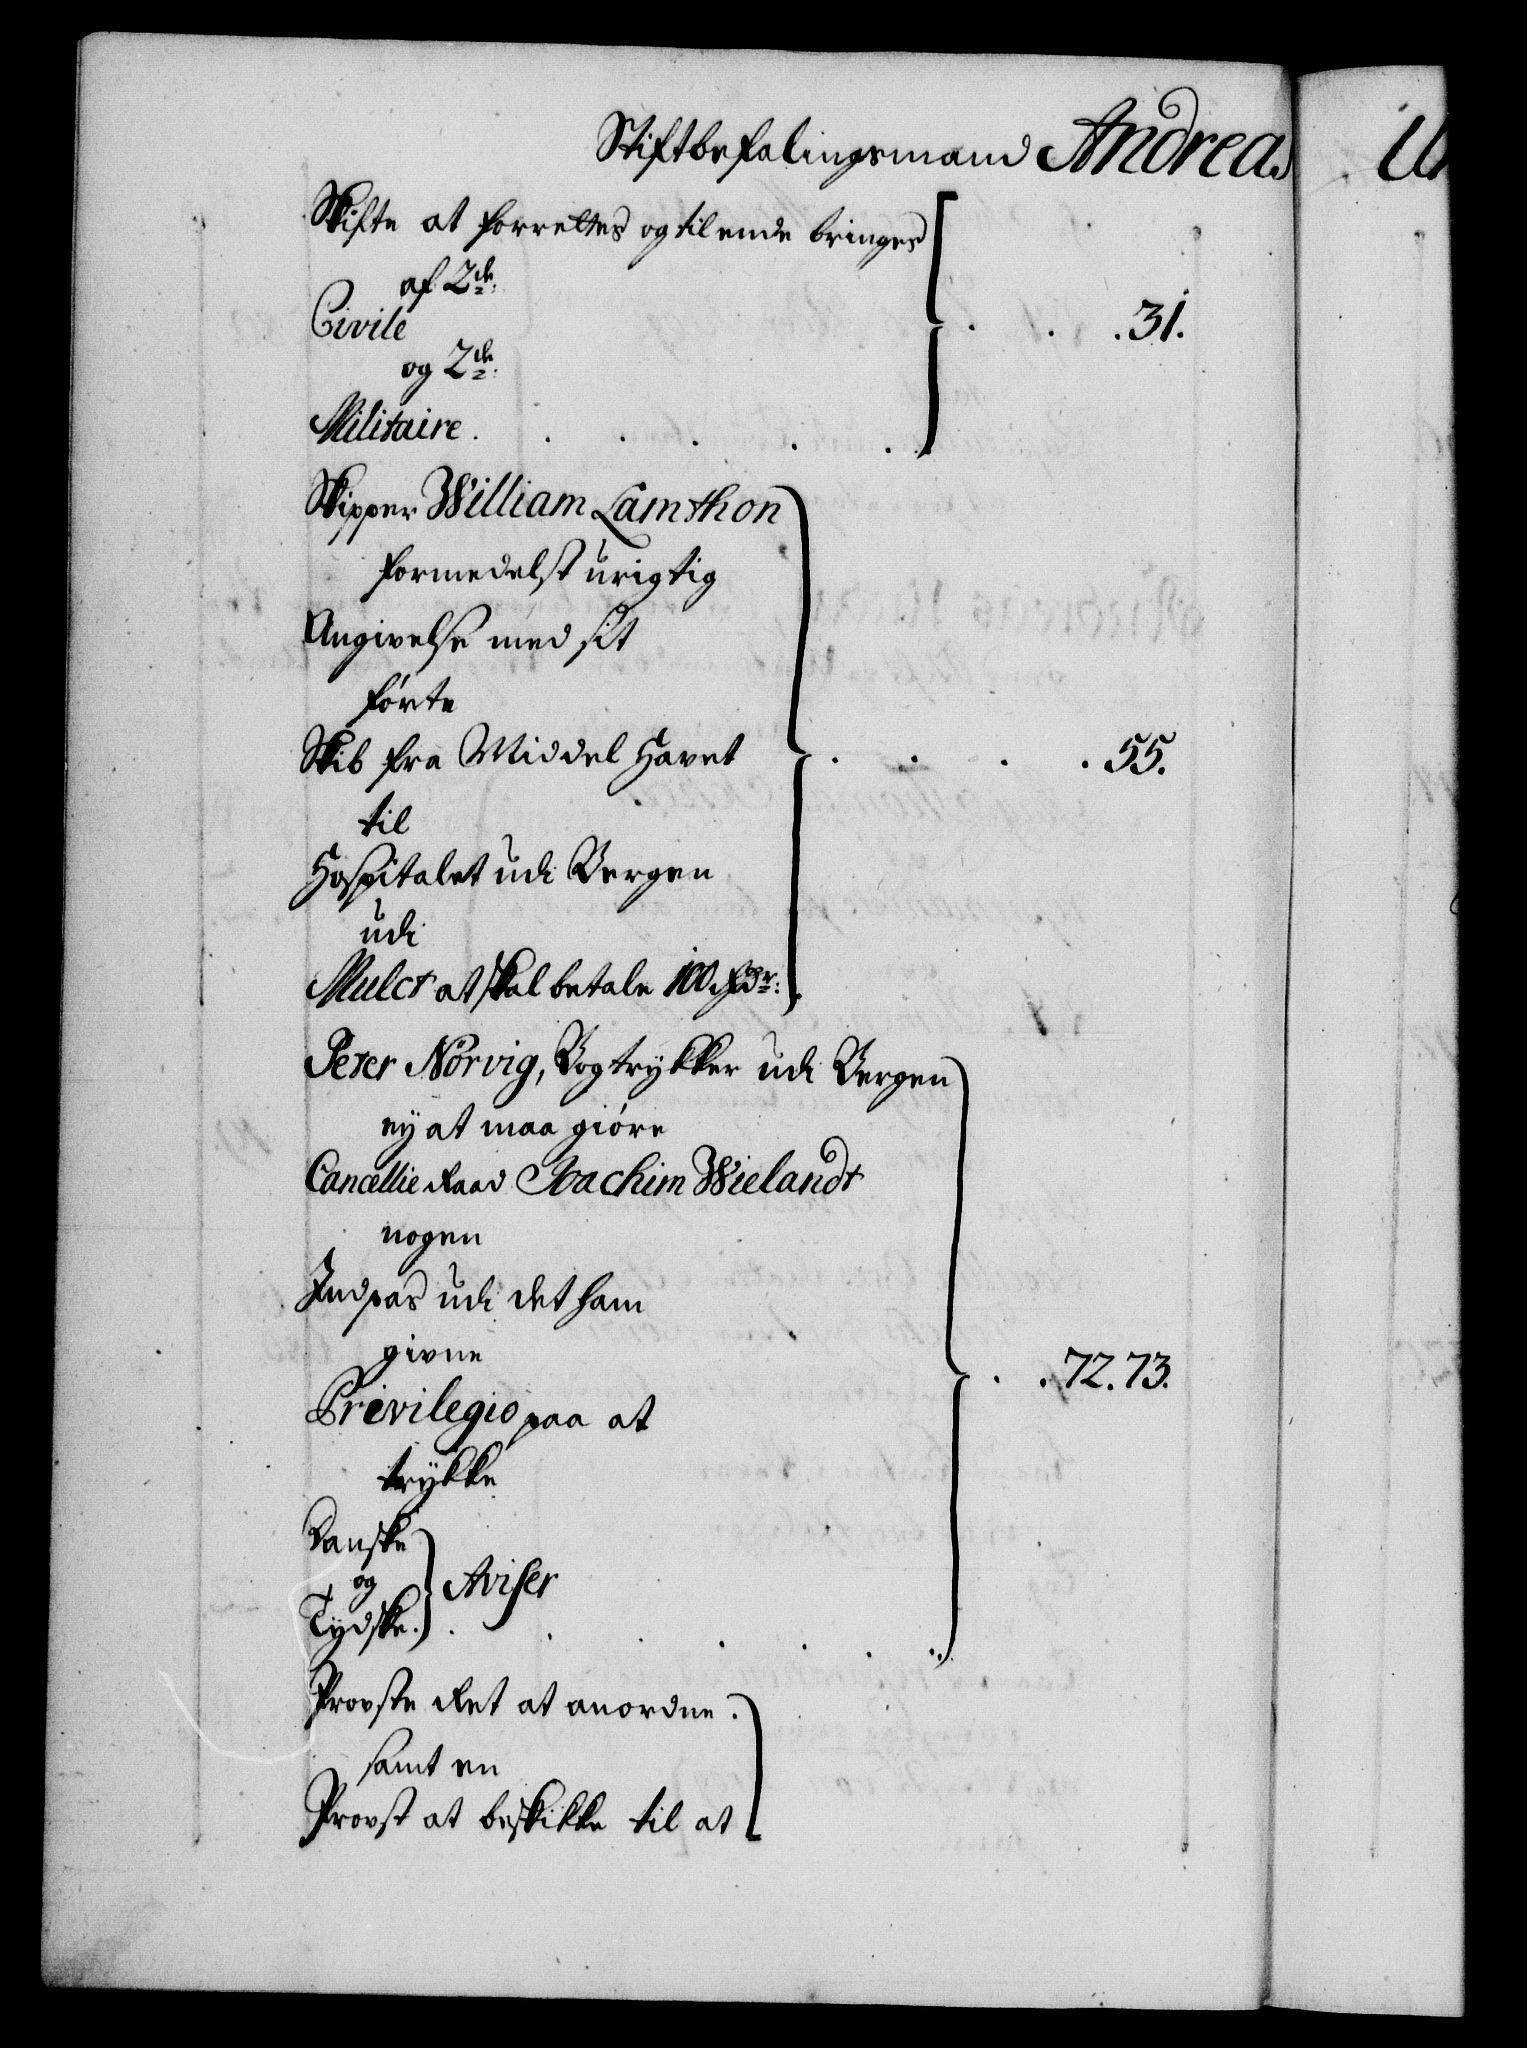 Stiftbefalingsmand Andreas
Skifte at forrettes og til ende bringes
af 2de:
Civile
og 2de:
Militaire . . . . . .
. . . 31.
Skipper William Lamthon
formedelst urigtig
Angivelse med sit
førte
Skib fra Middel Havet
til
Hospitalet udi Bergen
udi
Mulct at skal betale 100 Rdr:
. . . . 55.
Peter Nørvig, Bogtrykker udi Bergen
ey at maa giøre
Cancellie Raad Joachim Wielandt
nogen
Indpas udi det ham
givne
Privilegio paa at
trykke
Danske
og
Tydske.
Aviser
. . 72. 73.
Provste Ret at anordne.
samt en
Provst at beskikke til at